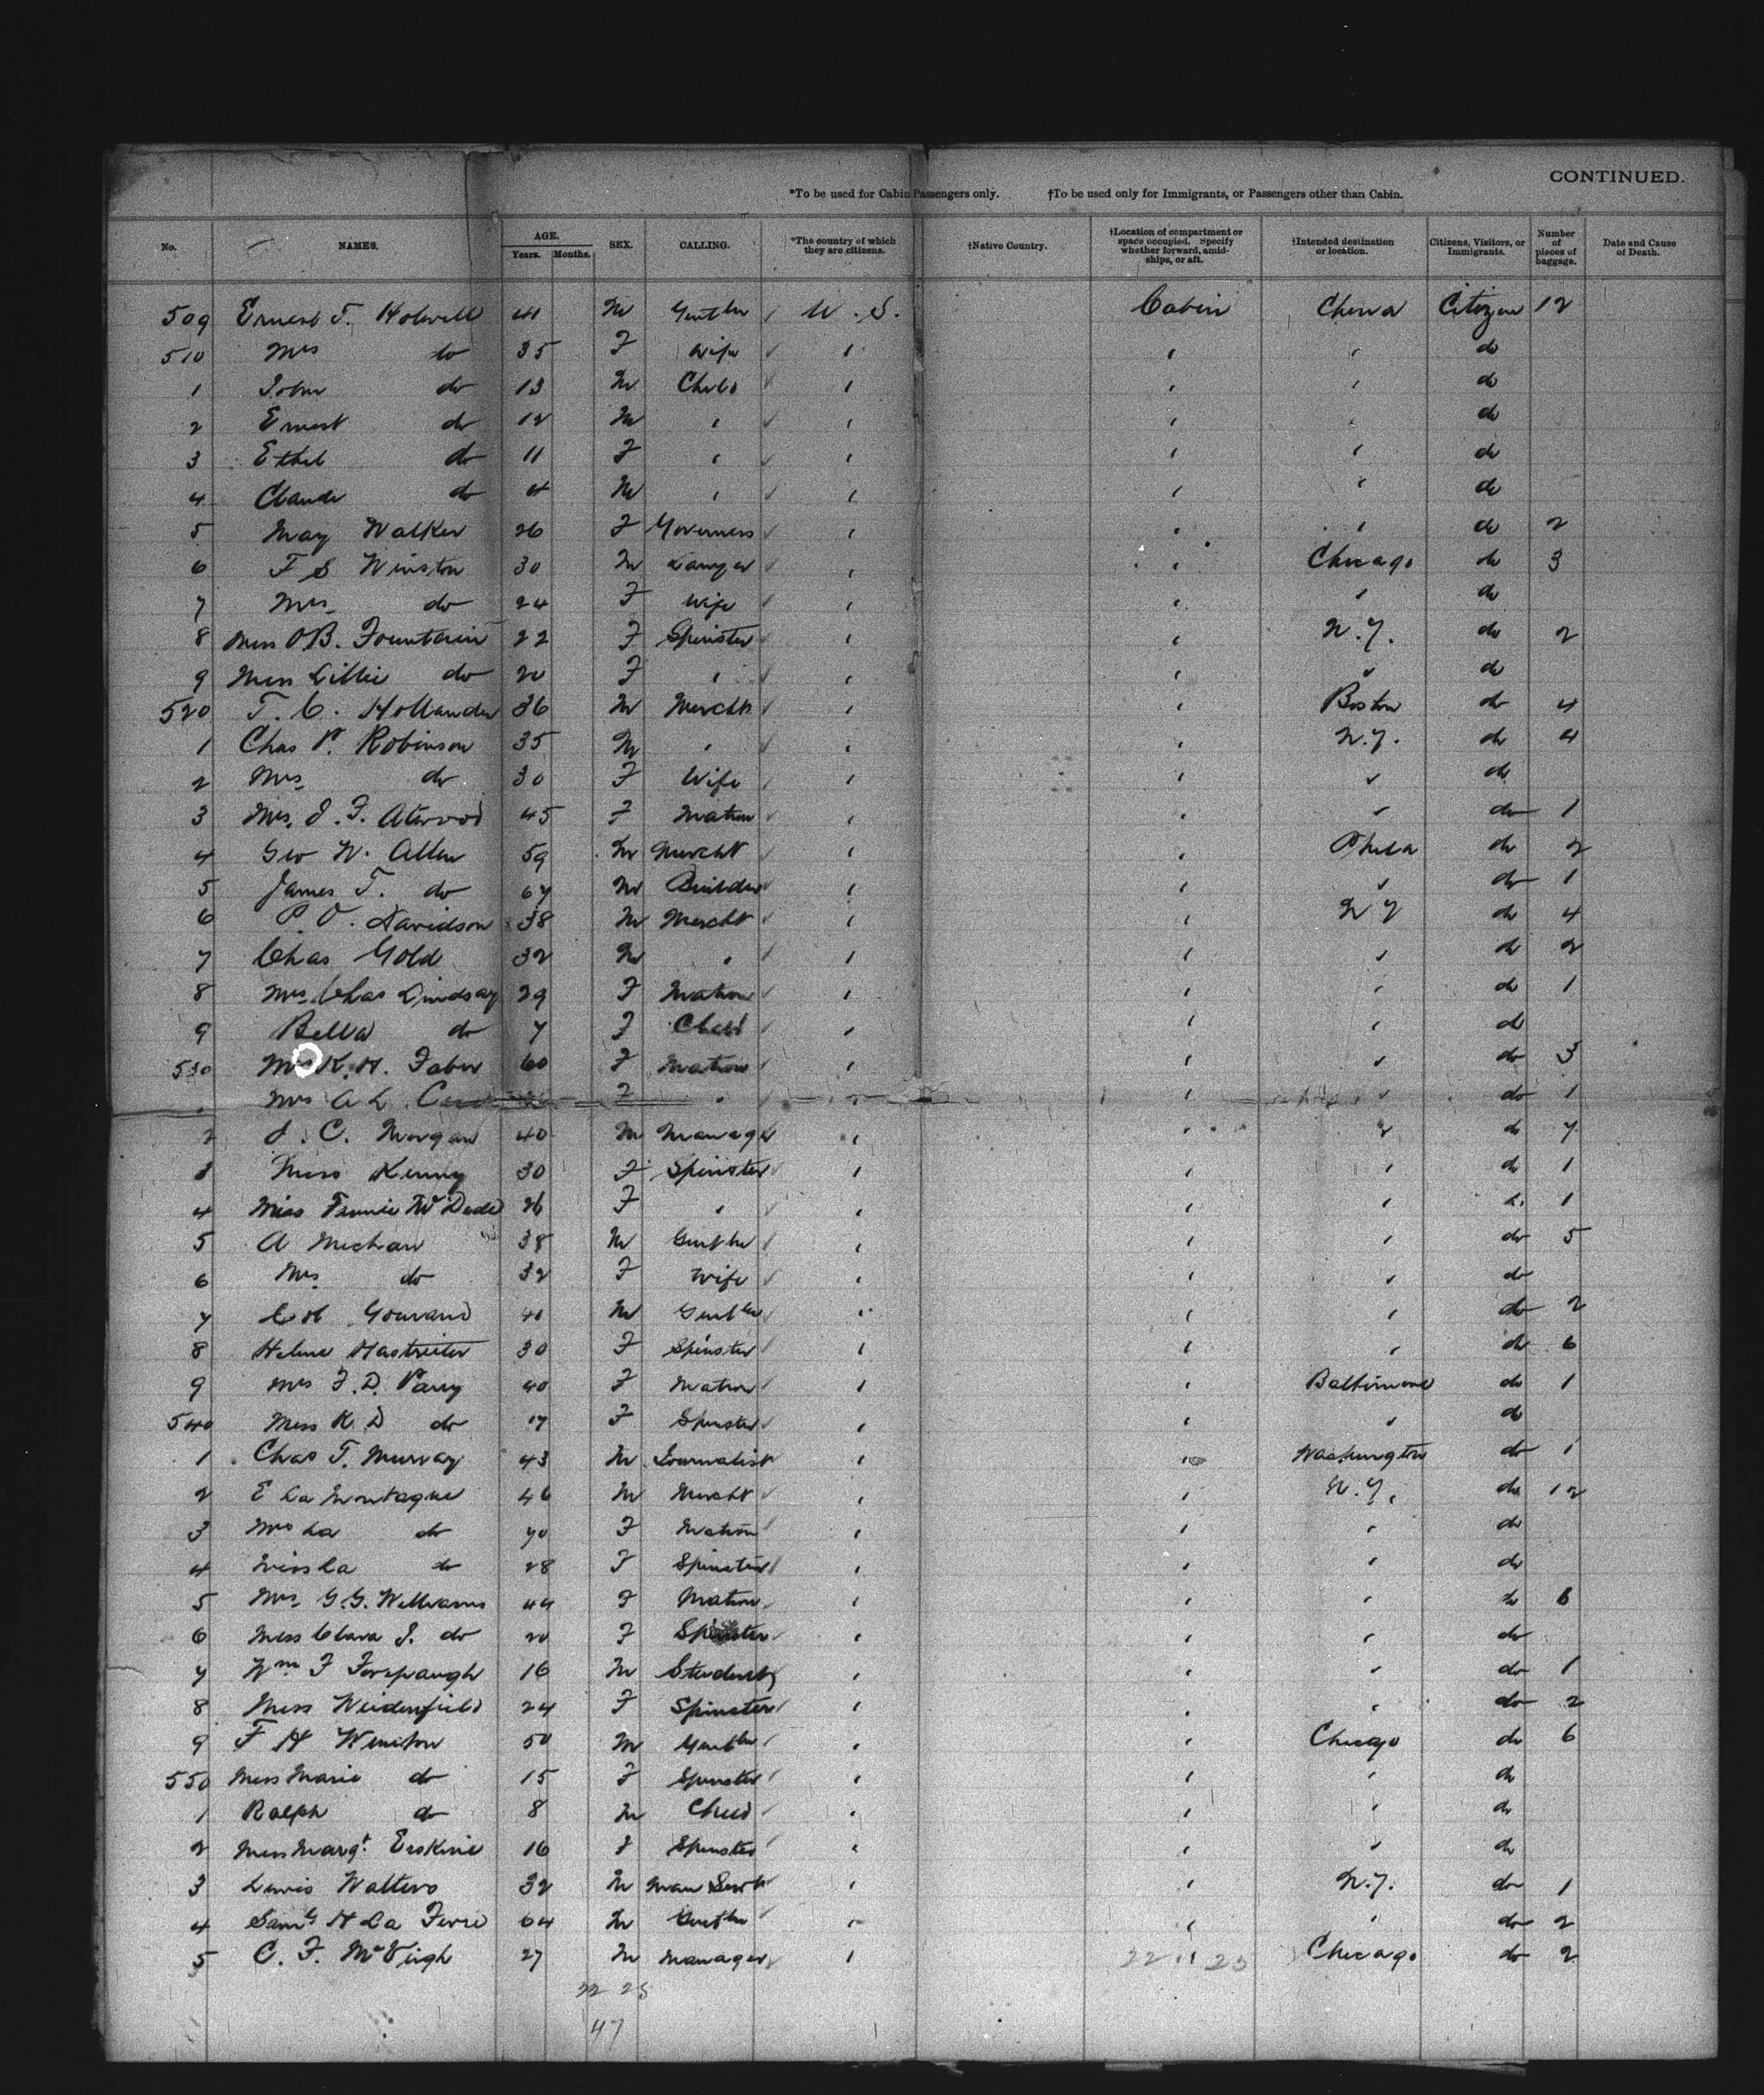 CONTINUED.
*To be used for Cabin Passengers only. †To be used only for Immigrants, or Passengers other than Cabin.
No. NAMES. AGE. Years. Months. SEX. CALLING. *The country of which they are citizens. †Native Country. †Location of compartment or space occupied. Specify whether forward, amidships, or aft. †Intended destination or location. Citizens, Visitors, or Immigrants. Number of pieces of baggage. Date and Cause of Death.
509 Ernest T. Holwell 41 M Gentln U.S. Cabin China Citizen 12
510 Mrs do 35 F Wife " " " do
1 John do 13 M Child " " " do
2 Ernest do 12 M " " " " do
3 Ethel do 11 F " " " " do
4 Claude do 4 M " " " " do
5 May Walker 26 F Governess " " " do 2
6 F S Winston 30 M Lawyer " " Chicago do 3
7 Mrs do 24 F Wife " " " do
8 Miss O B. Fountain 22 F Spinster " " N.Y. do 2
9 Miss Lillie do 20 F " " " " do
520 T. C. Hollander 36 M Mercht " " Boston do 4
1 Chas P. Robinson 35 M " " " N.Y. do 4
2 Mrs do 30 F Wife " " " do
3 Mrs. J. F. Atwood 45 F Matron " " " do 1
4 Geo W. Allen 59 M Mercht " " Phila do 2
5 James T. do 67 M Builder " " " do 1
6 P. O. Davidson 38 M Mercht " " N Y do 4
7 Chas Gold 32 M " " " " do 2
8 Mrs Chas Lindsay 29 F Matron " " " do 1
9 Bella do 7 F Child " " " do
530 Mrs K. H. Faber 60 F Matron " " " do 3
Mrs A L F " " " " do 1
2 J. C. Morgan 40 M Manager " " " do 7
3 Miss Kenny 30 F Spinster " " " do 1
4 Miss Fannie W Dade 26 F " " " " do 1
5 A Mechan 38 M Gentln " " " do 5
6 Mrs do 32 F Wife " " " do
7 Col Gouraud 40 M Gentln " " " do 2
8 Helene Hastreiter 30 F Spinster " " " do 6
9 Mrs F. D. Parry 40 F Matron " " Baltimore do 1
540 Miss K. D do 17 F Spinster " " " do
1 Chas T. Murray 43 M Journalist " " Washington do 1
2 E La Montague 46 M Mercht " " N.Y. do 12
3 Mrs La do 70 F Matron " " " do
4 Miss La do 28 F Spinster " " " do
5 Mrs G.G. Williams 44 F Matron " " " do 6
6 Miss Clara J. do 20 F Spinster " " " do
7 Wm F Forepaugh 16 M Student " " " do 1
8 Miss Weidenfield 24 F Spinster " " " do 2
9 F H Winston 50 M Gentln " " Chicago do 6
550 Miss Marie do 15 F Spinster " " " do
1 Ralph do 8 M Child " " " do
2 Miss Margt Erskine 16 F Spinster " " " do
3 Lewis Walters 32 M Man Servt " " N.Y. do 1
4 Saml H La Ferre 64 M Gentln " " " do 2
5 C. F. McVeigh 27 M Manager " 22 11 25 Chicago do 2
22 25
47